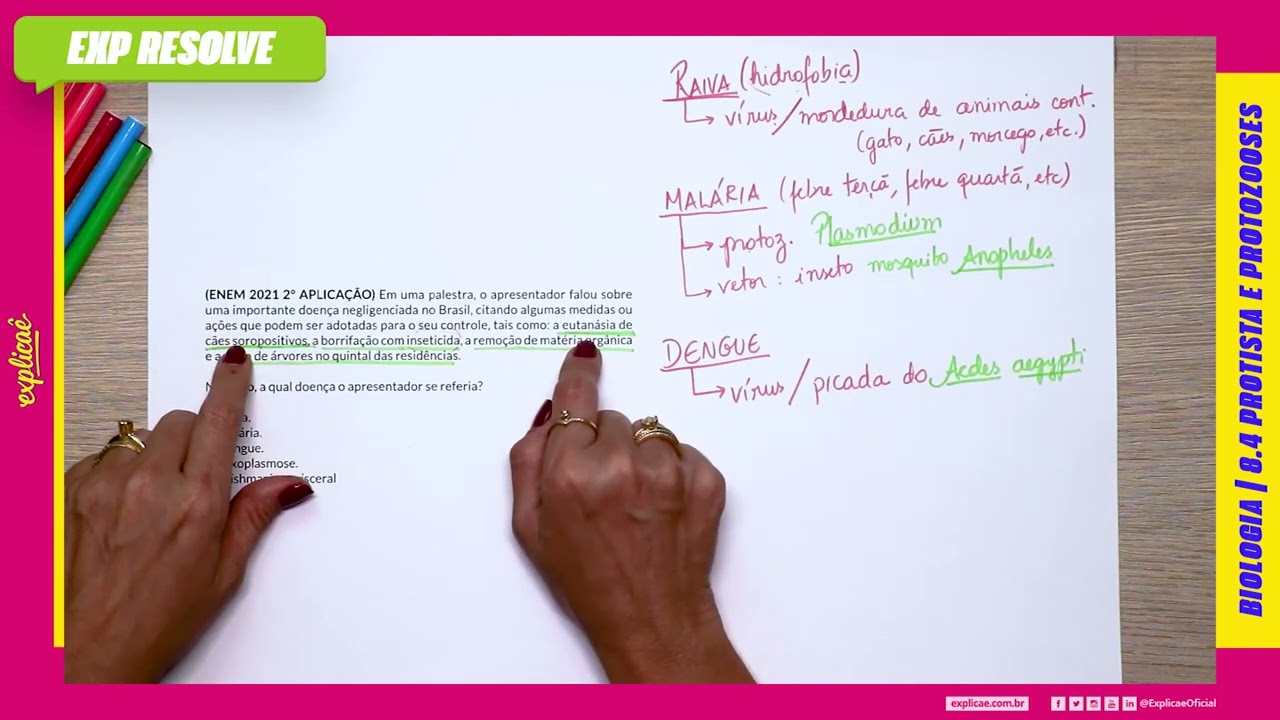 EXP RESOLVE
RAIVA (hidrofobia)
vírus / mordedura de animais cont.
(gato, cães, morcego, etc.)
MALÁRIA (febre terçã, febre quartã, etc)
protoz. Plasmodium
vetor : inseto mosquito Anopheles
DENGUE
vírus / picada do Aedes aegypti
(ENEM 2021 2° APLICAÇÃO) Em uma palestra, o apresentador falou sobre
uma importante doença negligenciada no Brasil, citando algumas medidas ou
ações que podem ser adotadas para o seu controle, tais como: a eutanásia de
cães soropositivos, a borrifação com inseticida, a remoção de matéria orgânica
e a de árvores no quintal das residências.
a qual doença o apresentador se referia?
explicaê
BIOLOGIA | 8.4 PROTISTA E PROTOZOOSES
explicae.com.br
@ExplicaeOficial